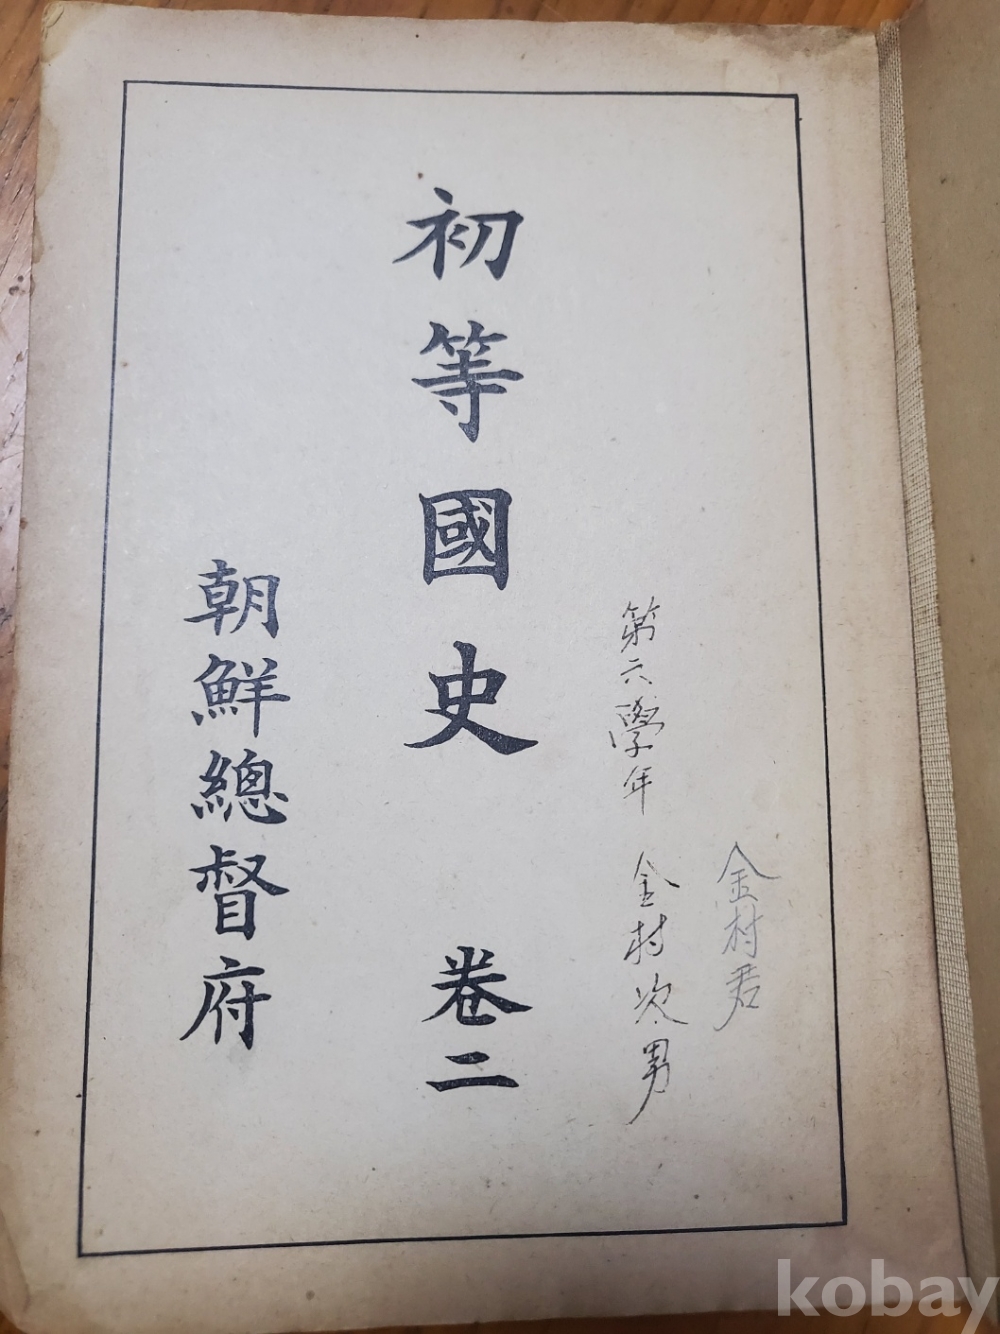 金村君
第六學年 金村次男
初等國史 卷二
朝鮮總督府
kobay